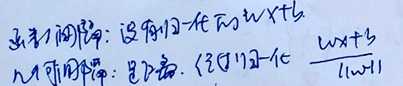 函数间隔：没有归一化的 wx+b
几何间隔：是距离．经归一化 wx+b / ||w||